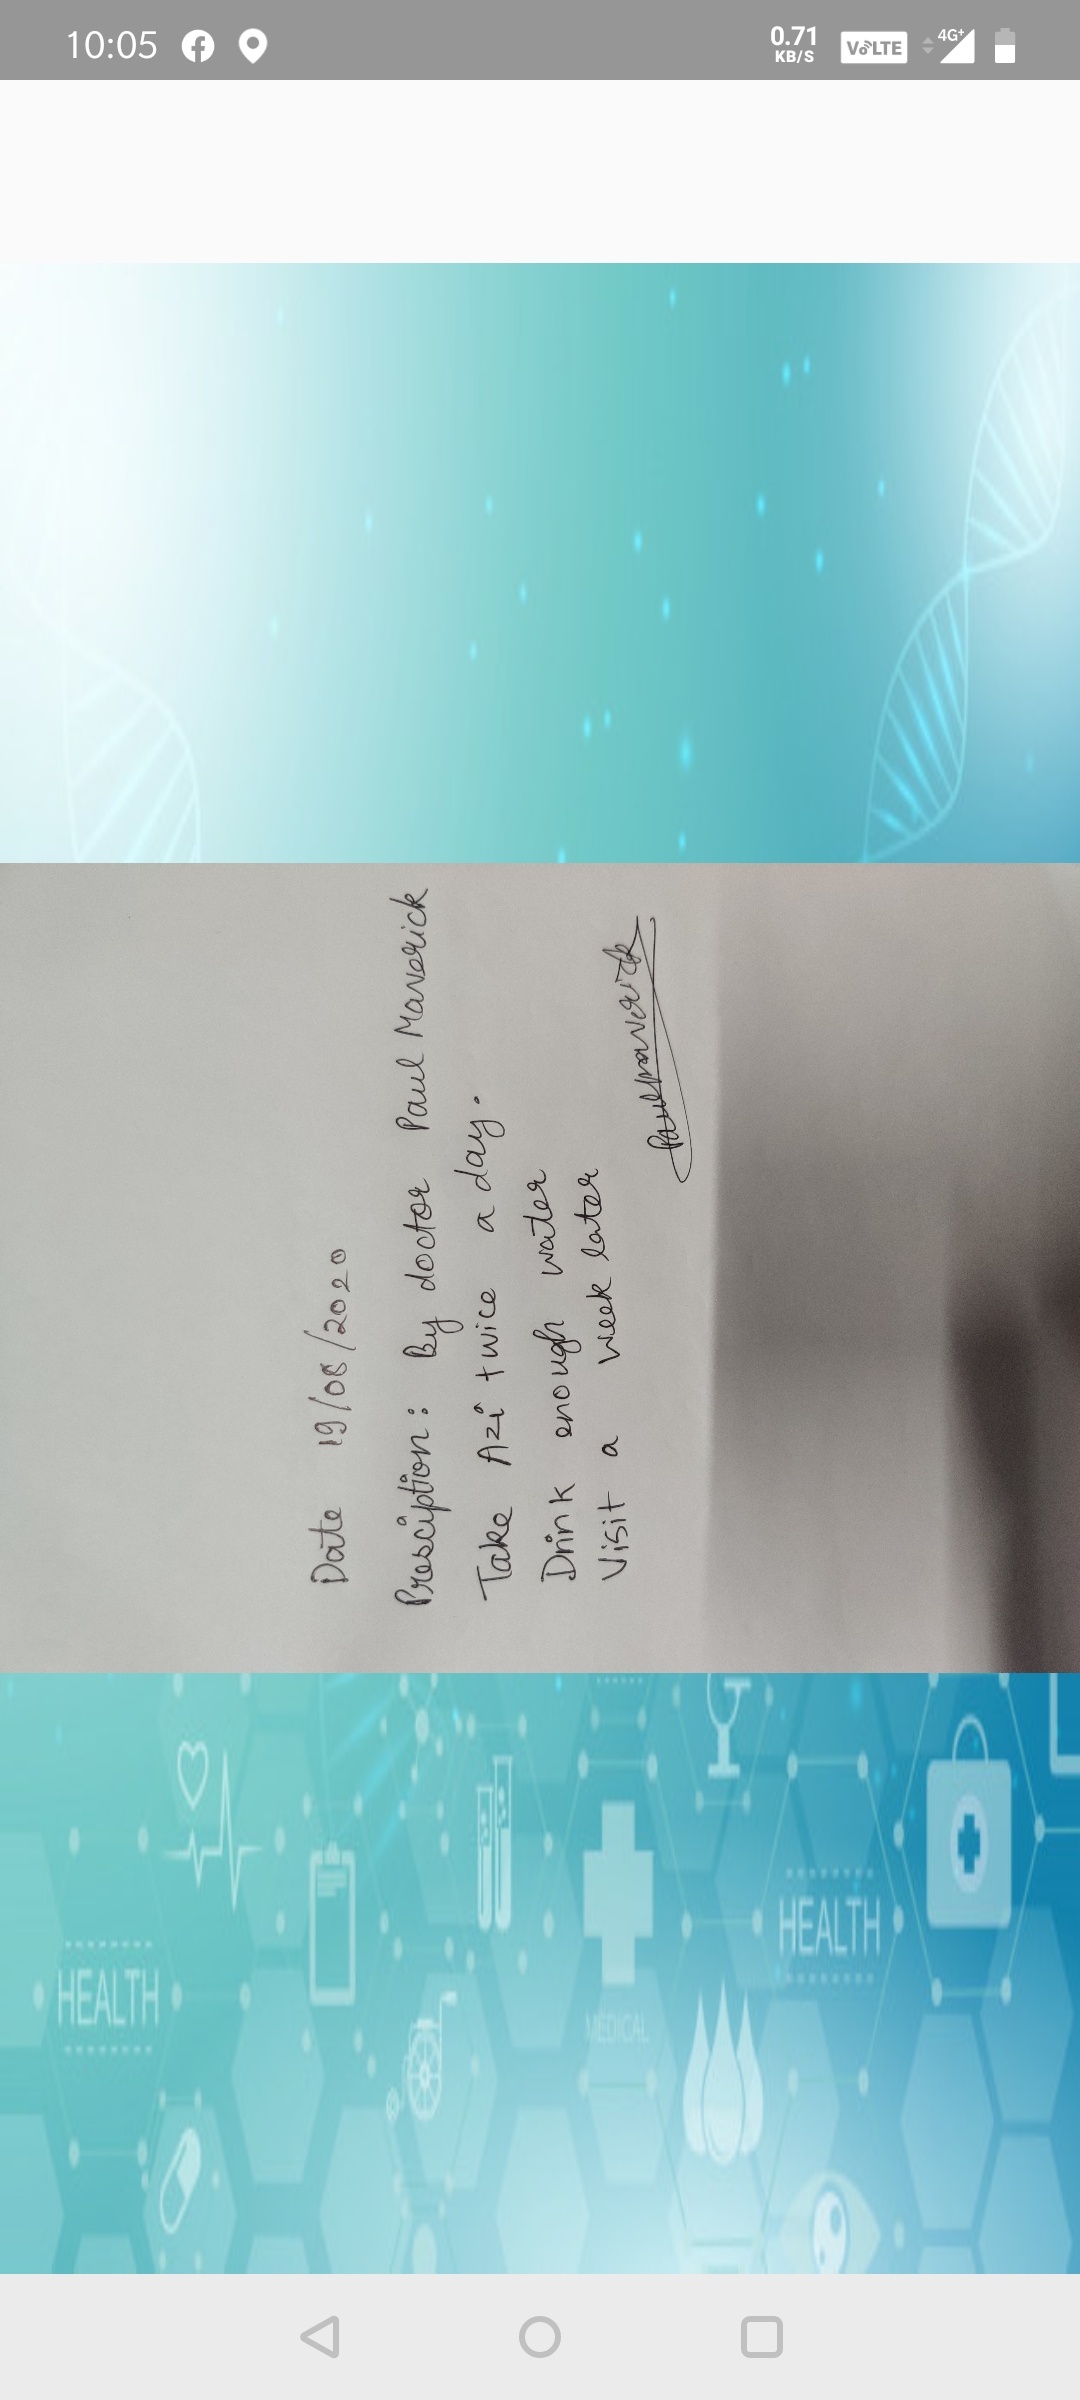 10:05
0.71
KB/S
VoLTE
4G+
Date 19/08/2020
Presciption: By doctor Paul Maverick
Take Azi twice a day.
Drink enough water
Visit a week later
Paulmaverick
HEALTH
MEDICAL
HEALTH